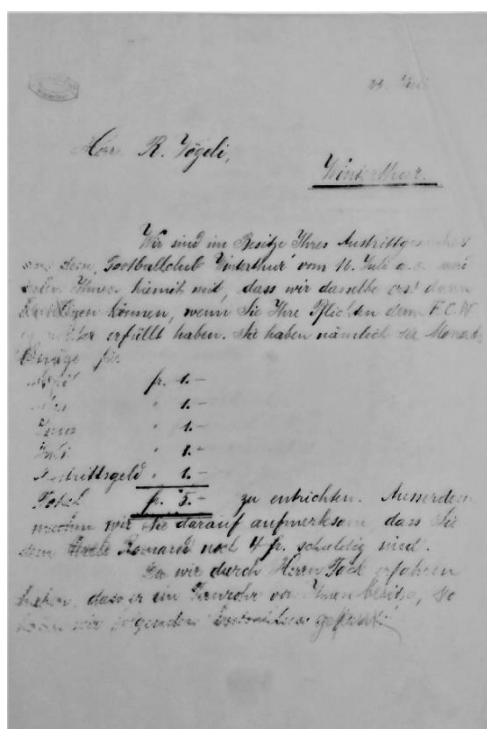 Herr R. Vögeli,
Winterthur.
Wir sind im Besitze Ihres Austrittgesuches
aus dem Footballclub Winterthur vom 16. Juli a.c. und
teilen Ihnen hiemit mit, dass wir dasselbe erst dann
können, wenn Sie Ihre Pflichten dem F.C.W.
erfüllt haben. Sie haben nämlich die Monats
für
April fr. 1.–
Mai " 1.–
Juni " 1.–
Juli " 1.–
Austrittsgeld " 1.–
Total fr. 5.– zu entrichten. Ausserdem
machen wir Sie darauf aufmerksam dass Sie
dem Romand noch 4 fr. schuldig sind.
Da wir durch Herrn erfahren
haben, dass er ein von Ihnen besitze, so
haben wir folgenden gefasst: